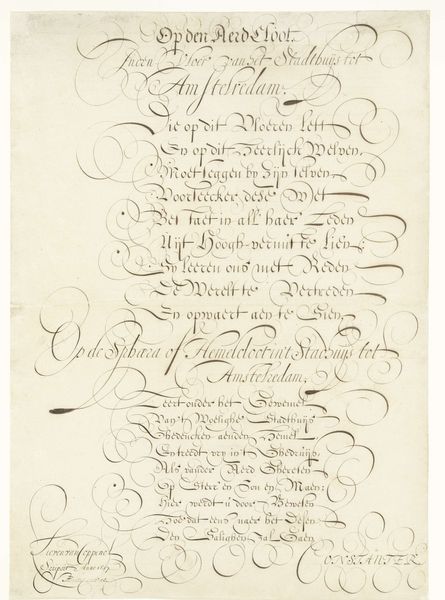 Op den Aerd Cloot.
Inden Vloer van het Stadthuijs tot
Amstelredam.
Die op dit Vloeren Lett
En op dit Heerlijck Welven,
Moet seggen by Zijn selven
Voorseecker dese Wet
Bet taet in all' haer Leden
Uijt Hoogh-vernuft te
Sy leeren ons met Reden
De Werelt te Vertreden
En opwaert aen te Sien.
Op de Sphæra of Hemelcloot in't Stadhuijs tot
Amstelredam.
Leert onder het Gewemel
Van't Woelighe Stadthuijs
Ghedencken aenden Hemel
En treedt vry in't Ghedruijs,
Als vander Aerd Ghereten
Op Sterr' en Son en Maen:
Hier werdt u door Beweten
Hoe dat eens naer het Desen
Den Salighen Zal Gaen
CONSTANTER.
Lieven van Coppenol
Scripsit Anno